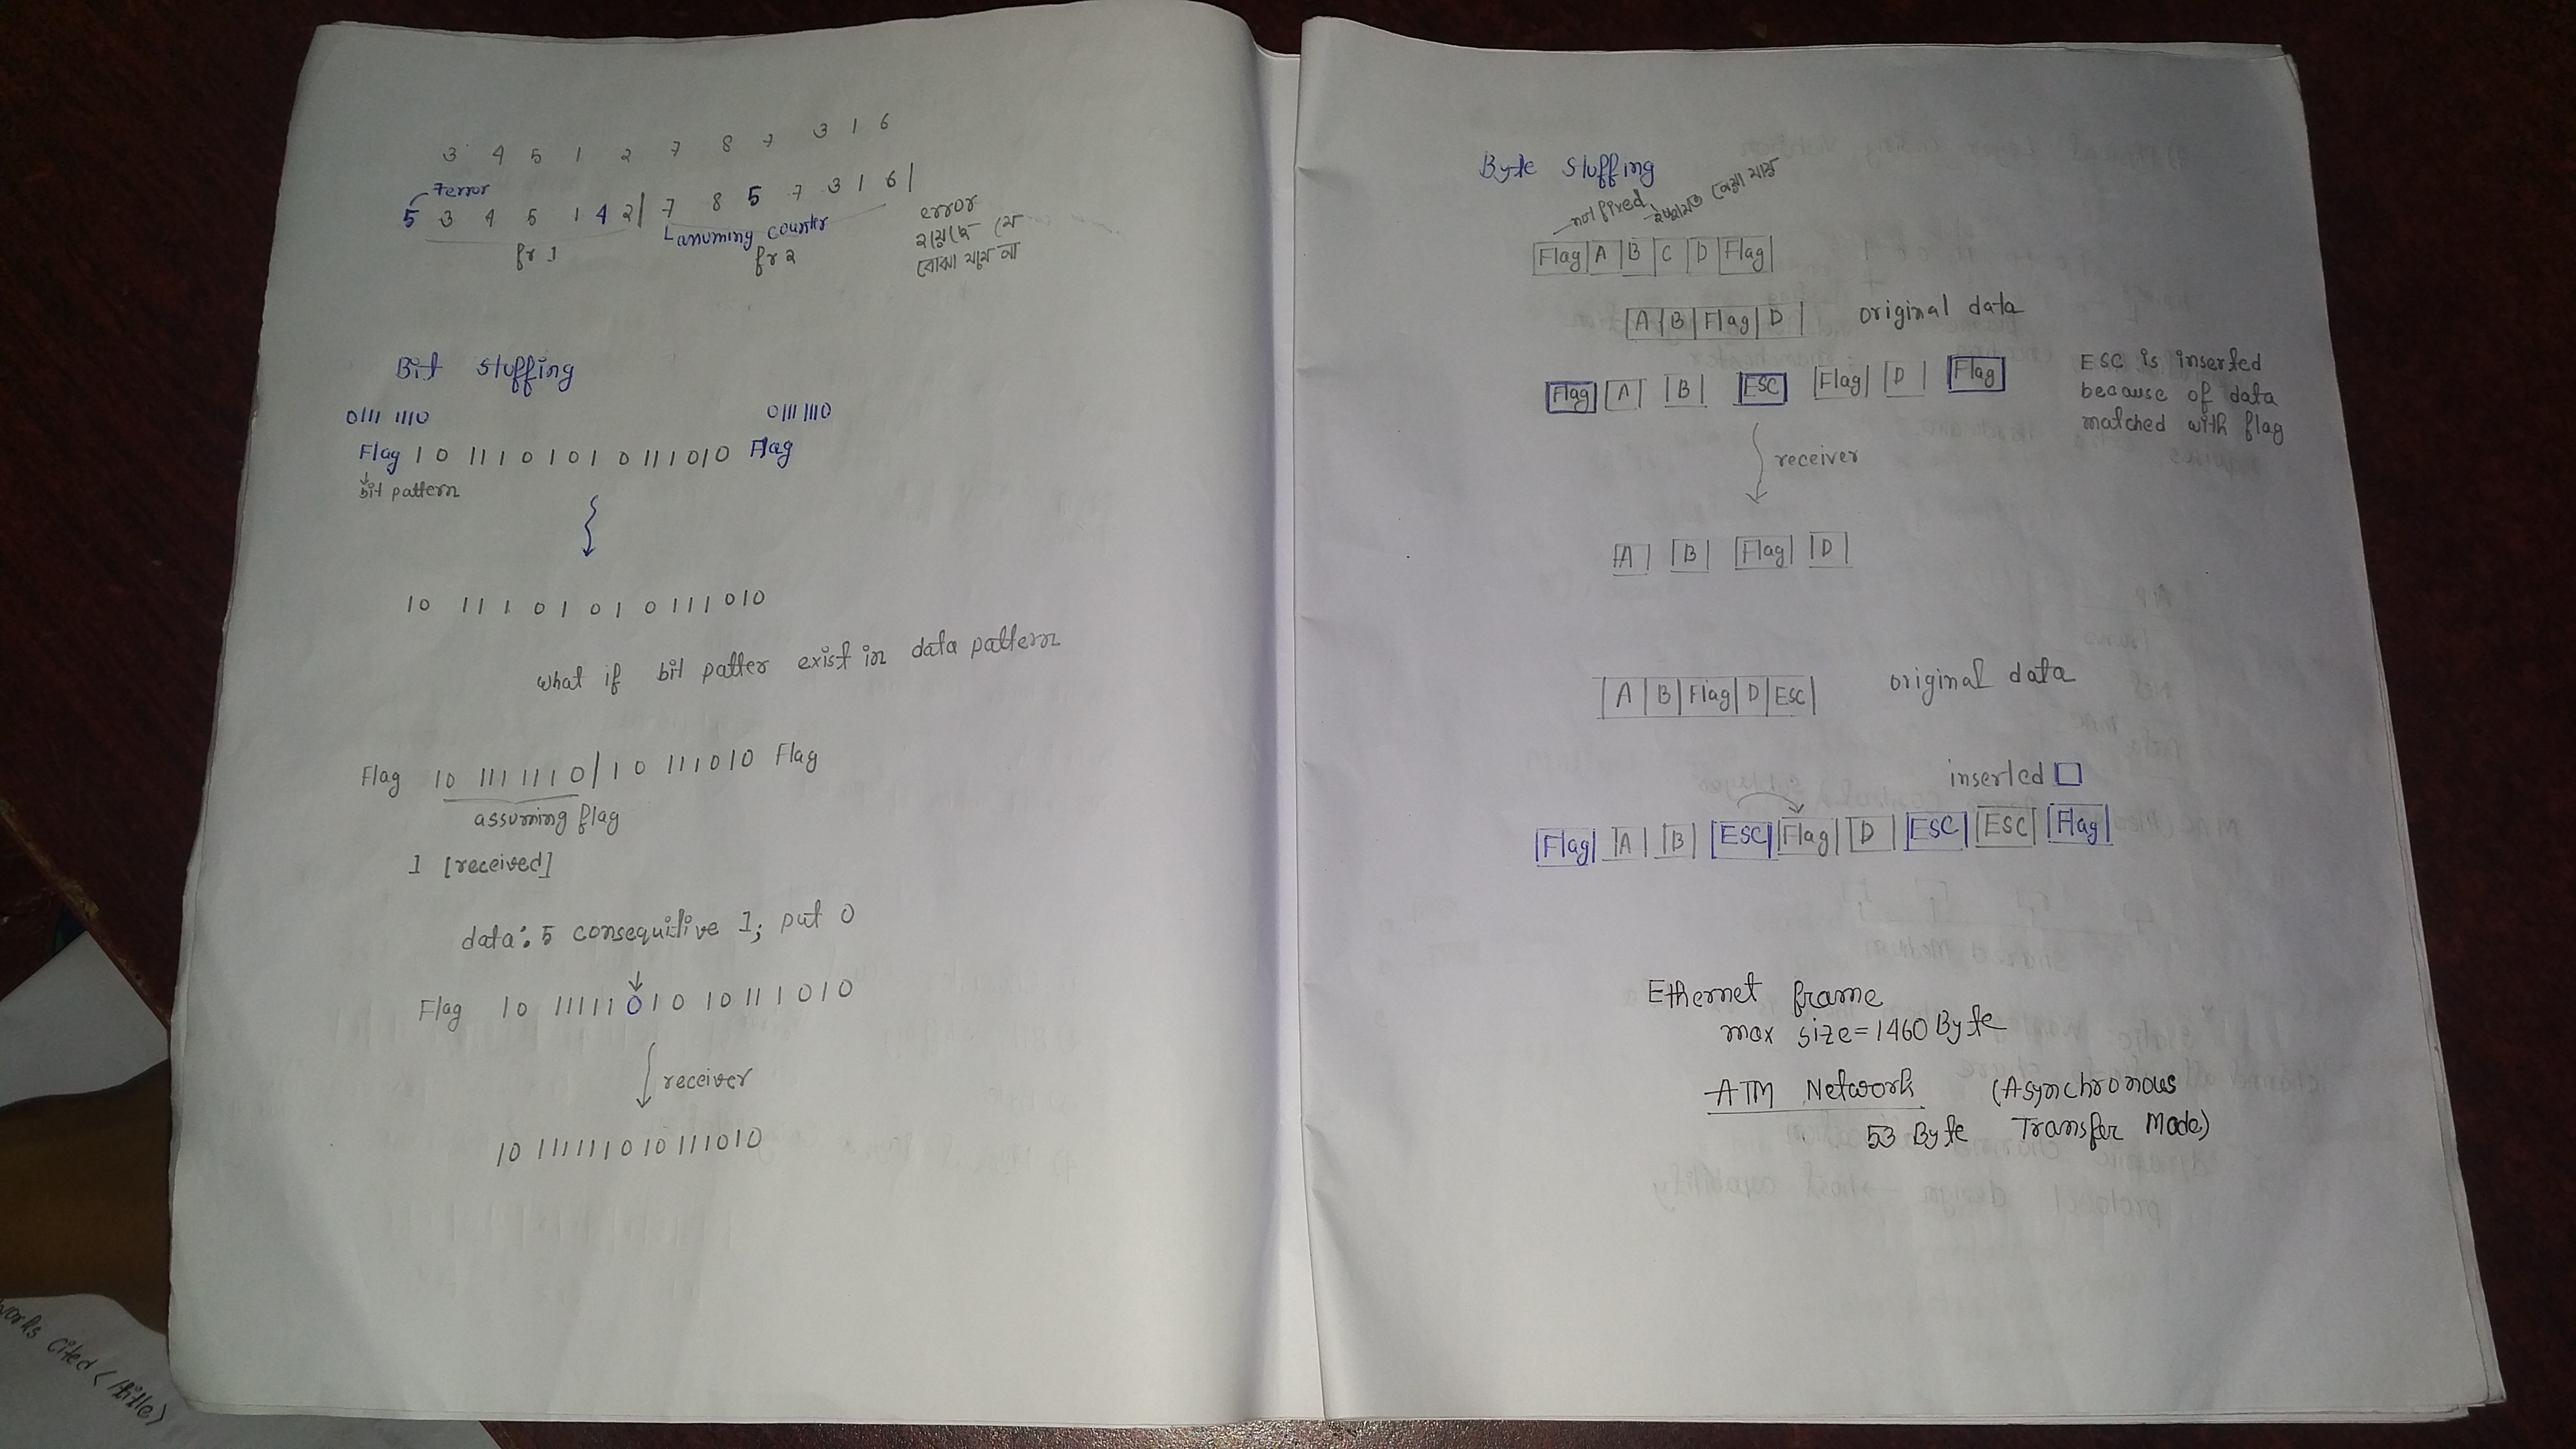 3 4 5 1 2 7 8 7 3 1 6
7 error
5 3 4 5 1 4 2 | 7 8 5 7 3 1 6 |
fr 1
assuming counter
fr 2
error
হয়েছে যে
বোঝা যায় না
Bit stuffing
0111 1110 0111 1110
Flag 1 0 111 0 1 0 1 0 111010 Flag
bit pattern
10 111 0 1 0 1 0 111 010
what if bit patter exist in data pattern
Flag 10 111 111 0 | 1 0 111010 Flag
assuming flag
1 [received]
data: 5 consequitive 1; put 0
Flag 10 11111 0 1 0 10 111 010
receiver
10 111111 0 10 111010
Byte stuffing
not fixed
Flag A B C D Flag
A B Flag D original data
Flag A B ESC Flag D Flag
ESC is inserted
because of data
matched with flag
receiver
A B Flag D
A B Flag D ESC original data
inserted
Flag A B ESC Flag D ESC ESC Flag
Ethernet frame
max size = 1460 Byte
ATM Network (Asynchronous
53 Byte Transfer Mode)
works cited </title>